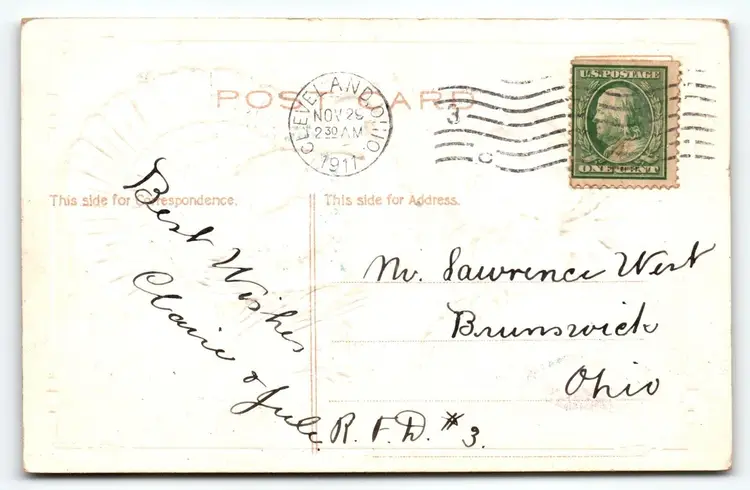 POST CARD
CLEVELAND, OHIO
NOV 29
2 30 AM
1911
3
C
U.S. POSTAGE
ONE CENT
This side for Correspondence.
This side for Address.
Best Wishes
Claire & Jule.
Mr. Lawrence West
Brunswick
Ohio
R. F. D. #3.